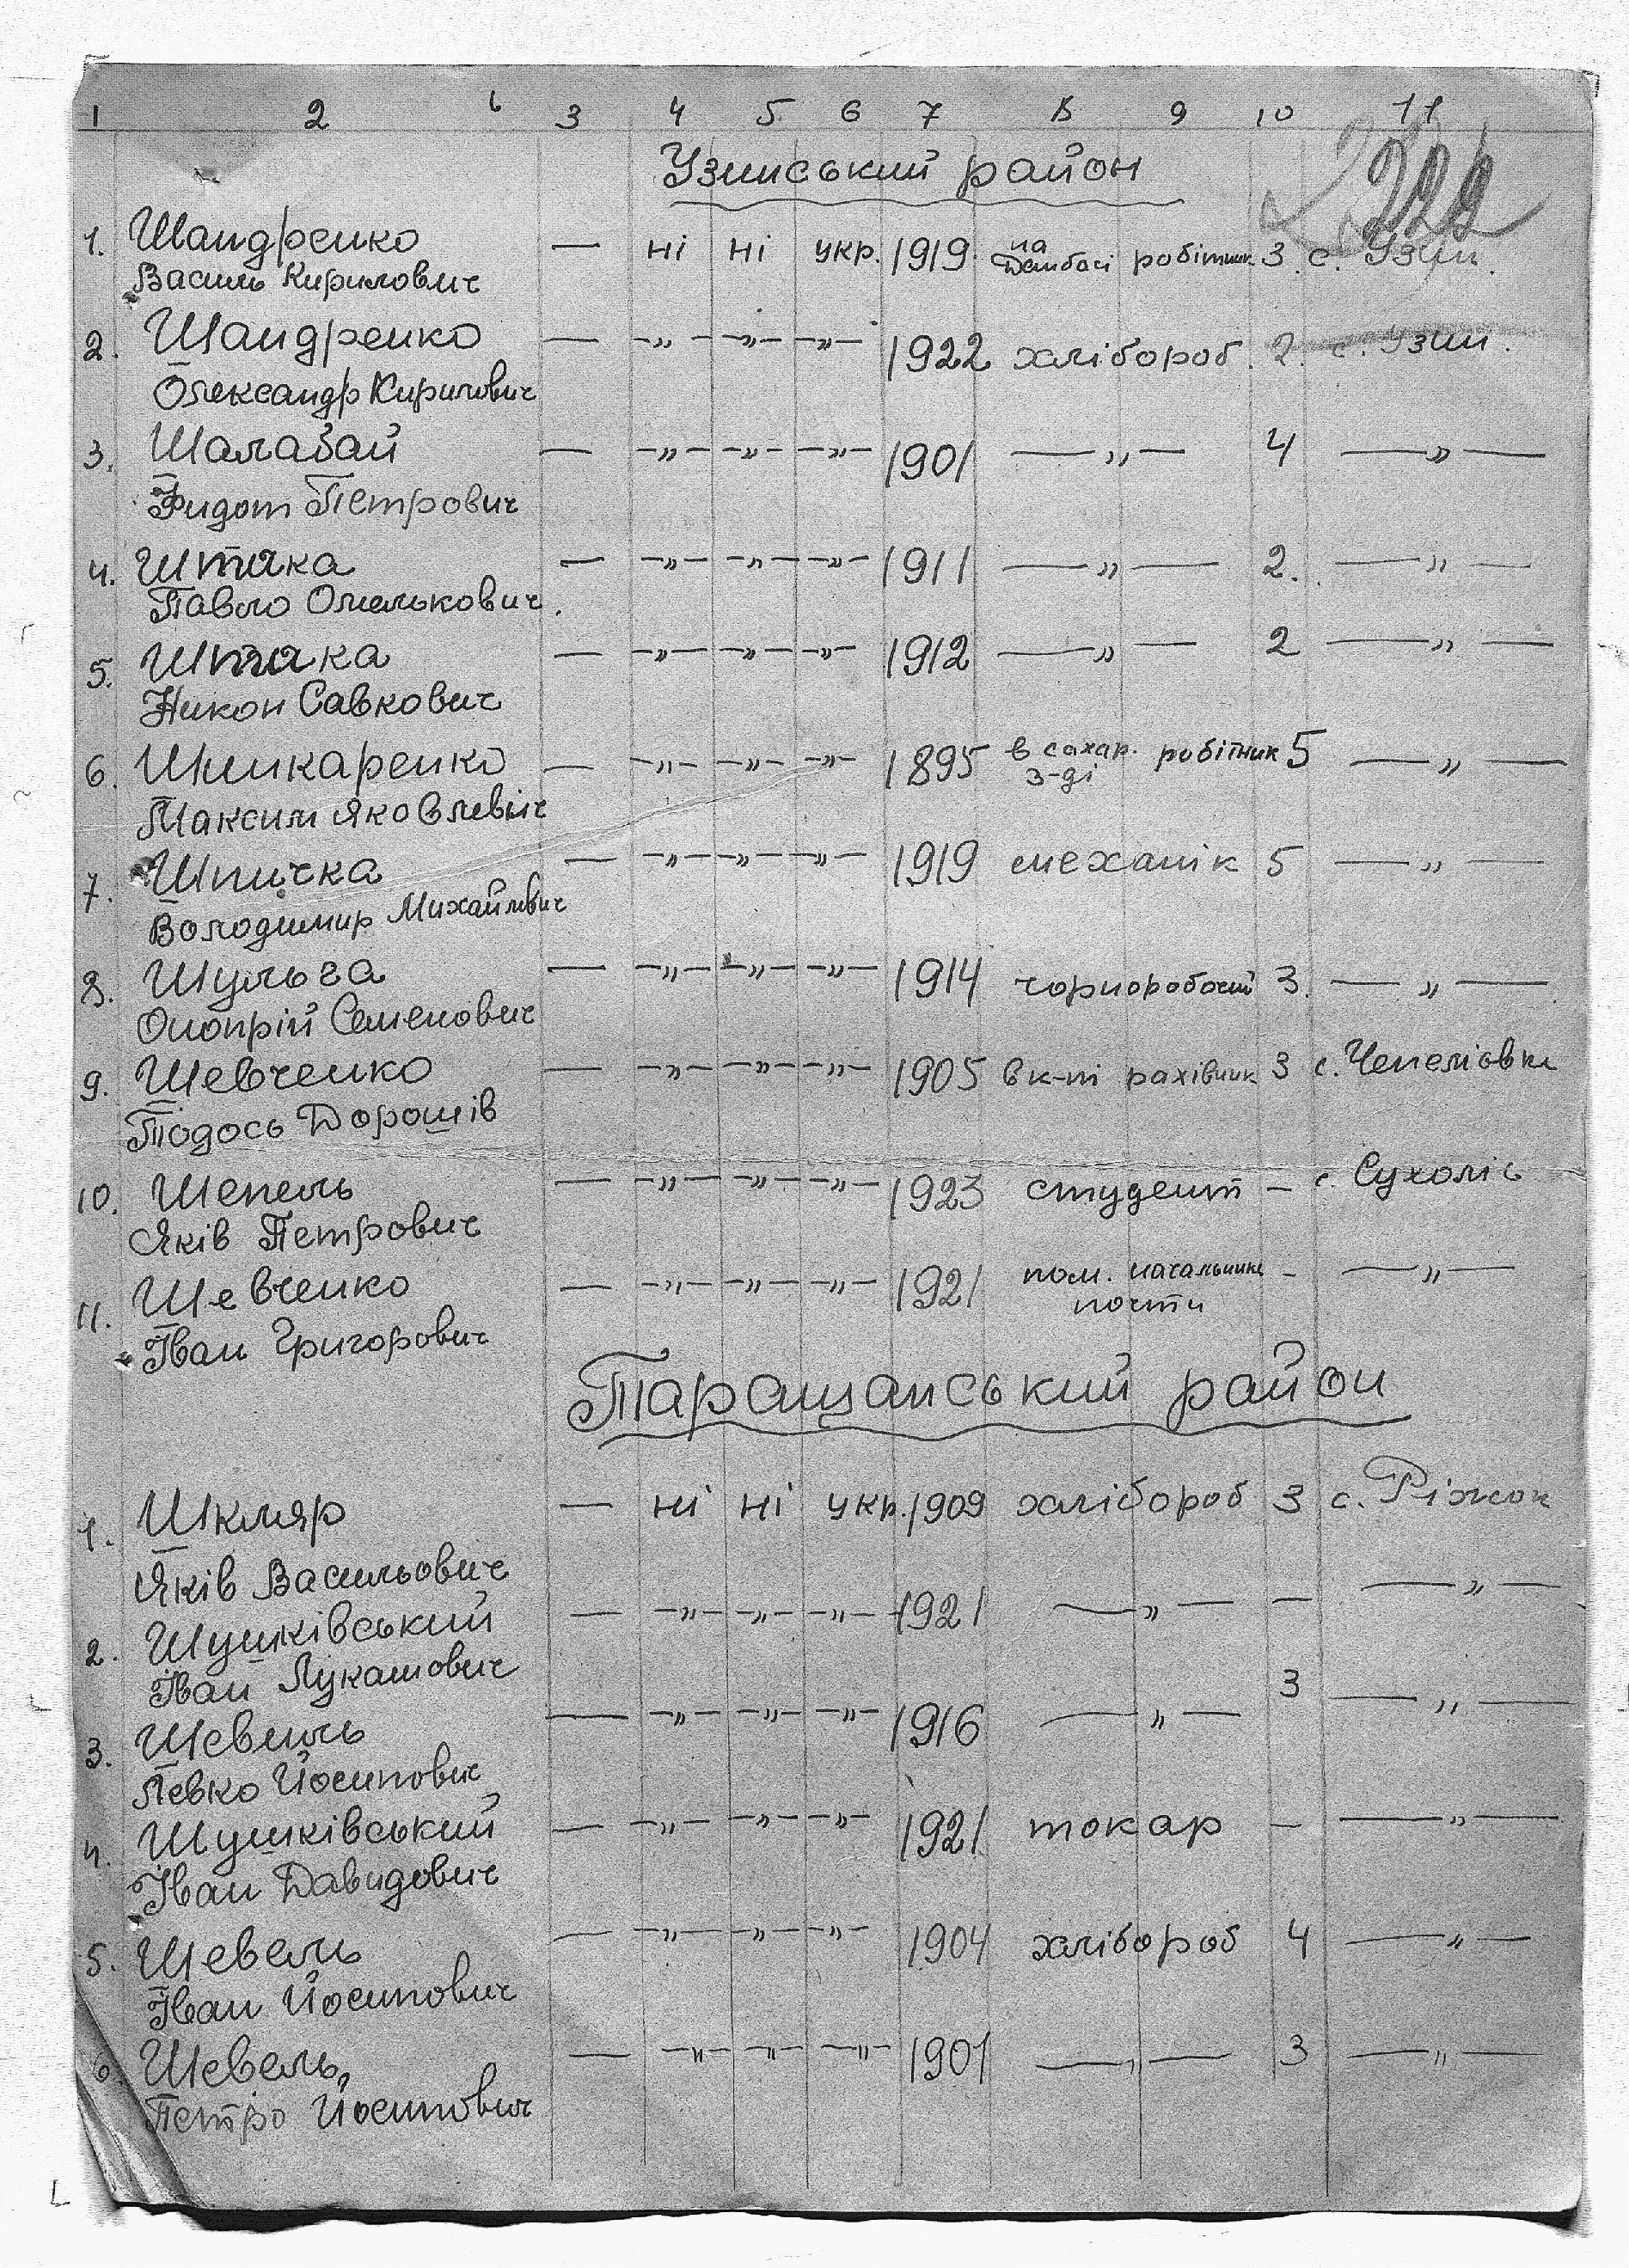 1 2 3 4 5 6 7 8 9 10 11
222
Узинський район
1. Шандренко — ні ні укр. 1919 на Домбасі робітник 3. с. Узин.
Василь Кирилович
2. Шандренко — —„— —„— —„— 1922 хлібороб. 2. с. Узин.
Олександр Кирилович
3. Шалабай — —„— —„— —„— 1901 —„— 4 —„—
Фидот Петрович
4. Штака — —„— —„— —„— 1911 —„— 2. —„—
Павло Омелькович.
5. Штака — —„— —„— —„— 1912 —„— 2 —„—
Никон Савкович
6. Шинкаренко — —„— —„— —„— 1895 в сахар. з-ді робітник 5 —„—
Максим Яковлевич
7. Шпичка — —„— —„— —„— 1919 механік 5 —„—
Володимир Михайлович
8. Шульга — —„— —„— —„— 1914 чорноробочий 3. —„—
Онопрій Семенович
9. Шевченко — —„— —„— —„— 1905 в к-пі рахівник 3 с. Чепеліовка
Тодось Дорошів
10. Шепель — —„— —„— —„— 1923 студент — с. Сухоліс
Яків Петрович
11. Шевченко — —„— —„— —„— 1921 пом. начальника почти — —„—
Іван Григорович
Таращанський район
1. Шкляр — ні ні укр. 1909 хлібороб 3 с. Ріжок
Яків Васильович
2. Шушківський — —„— —„— —„— 1921 —„— — —„—
Іван Лукашович
3. Шевель — —„— —„— —„— 1916 —„— 3 —„—
Левко Йосипович
4. Шушківський — —„— —„— —„— 1921 токар — —„—
Іван Давидович
5. Шевель — —„— —„— —„— 1904 хлібороб 4 —„—
Іван Йосипович
6. Шевель — —„— —„— —„— 1901 —„— 3 —„—
Петро Йосипович